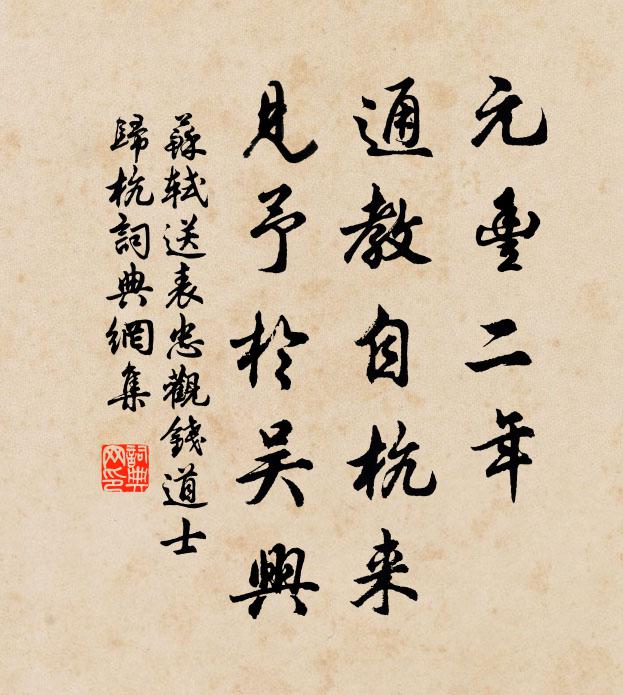 元豐二年
通教自杭来
見予於吴興
蘇軾送表忠觀錢道士
歸杭詞典網集
詞典网印